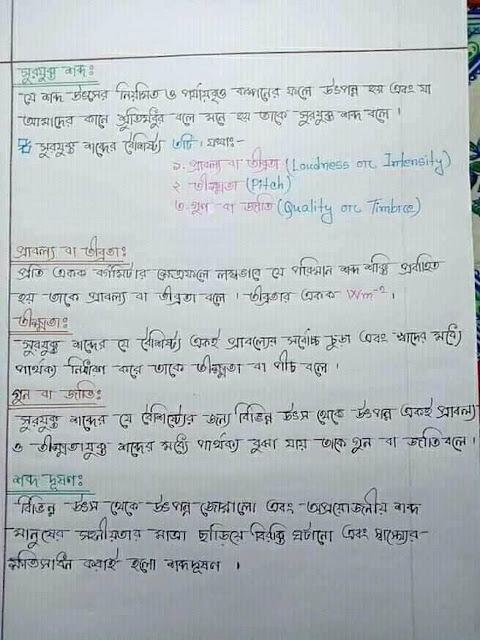 সুরযুক্ত শব্দঃ
যে শব্দ উৎসের নিয়মিত ও পর্যাবৃত্ত কম্পনের ফলে উৎপন্ন হয় এবং যা
আমাদের কানে শ্রুতিমধুর বলে মনে হয় তাকে সুরযুক্ত শব্দ বলে ।
সুরযুক্ত শব্দের বৈশিষ্ট্য ৩টি । যথাঃ-
১. প্রাবল্য বা তীব্রতা (Loudness or Intensity)
২. তীক্ষ্ণতা (Pitch)
৩. গুন বা জাতি (Quality or Timbre)
প্রাবল্য বা তীব্রতাঃ
প্রতি একক বর্গমিটার ক্ষেত্রফলে লম্বভাবে যে পরিমান শব্দ শক্তি প্রবাহিত
হয় তাকে প্রাবল্য বা তীব্রতা বলে । তীব্রতার একক Wm⁻² ।
তীক্ষ্ণতাঃ
সুরযুক্ত শব্দের যে বৈশিষ্ট্য একই প্রাবল্যের সর্বোচ্চ চূড়া এবং খাদের মধ্যে
পার্থক্য নির্ধারণ করে তাকে তীক্ষ্ণতা বা পীচ বলে ।
গুন বা জাতিঃ
সুরযুক্ত শব্দের যে বৈশিষ্ট্যের জন্য বিভিন্ন উৎস থেকে উৎপন্ন একই প্রাবল্য
ও তীক্ষ্ণতাযুক্ত শব্দের মধ্যে পার্থক্য বুঝা যায় তাকে গুন বা জাতি বলে ।
শব্দ দূষণঃ
বিভিন্ন উৎস থেকে উৎপন্ন জোরালো এবং অপ্রয়োজনীয় শব্দ
মানুষের সহনীয়তার মাত্রা ছাড়িয়ে বিরক্তি ঘটানো এবং স্বাস্থ্যের-
ক্ষতিসাধন করাই হলো শব্দদূষণ ।